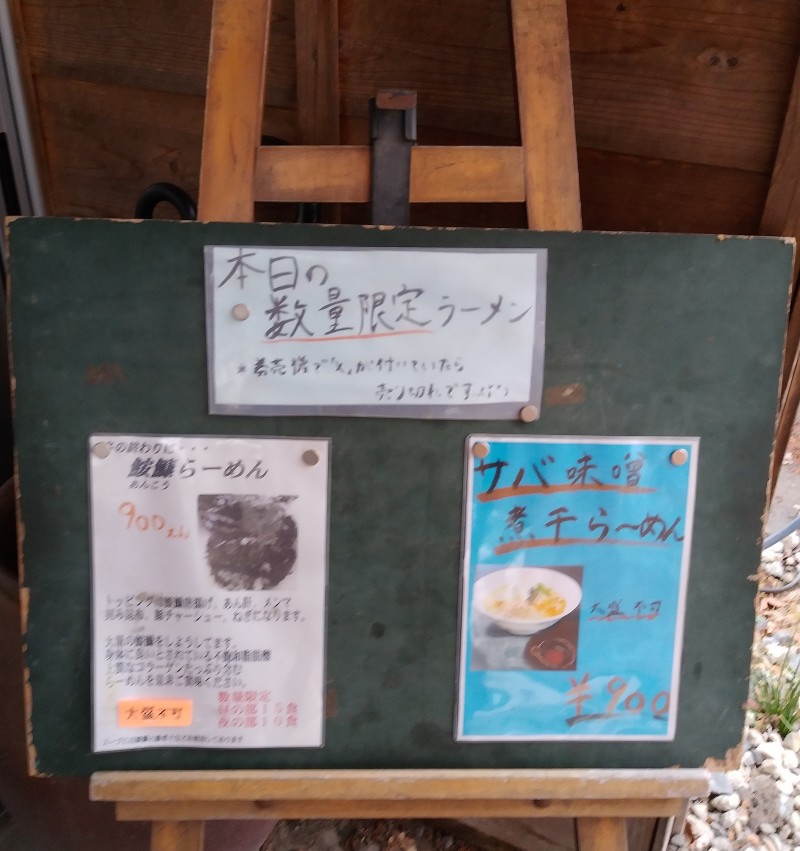 本日の
数量限定ラーメン
※券売機で「×」が付いていたら
売り切れです
の終わりは・・・
鮟鱇らーめん
あんこう
900えん
トッピングは鮟鱇唐揚げ、あん肝、メンマ
刻み昆布、チャーシュー、ねぎになります。
大量の鮟鱇をしようしてます。
身体に良いとされている不飽和脂肪酸
上質なコラーゲンたっぷり含む
らーめんを是非ご賞味ください。
数量限定
大盛不可
昼の部15食
夜の部10食
サバ味噌
煮干らーめん
大盛不可
¥900